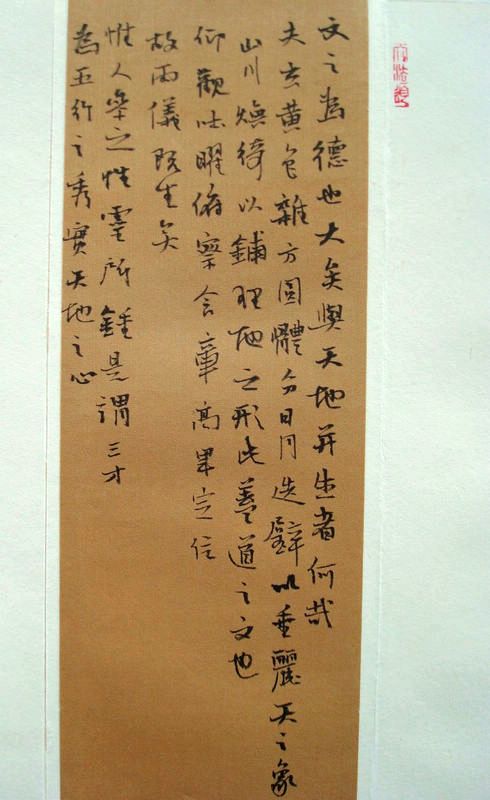 文之為德也大矣與天地并生者何哉
夫玄黃色雜方圓體分日月迭璧以垂麗天之象
山川煥綺以鋪理地之形此蓋道之文也
仰觀吐曜俯察含章高卑定位
故兩儀既生矣
惟人參之性靈所鍾是謂三才
為五行之秀實天地之心